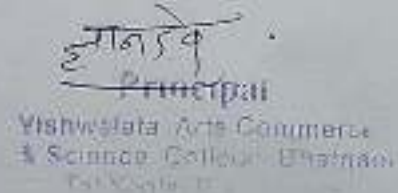 ज्ञानदेव
Principal
Vishwalata Arts Commerce
& Science College, Bhatgaon